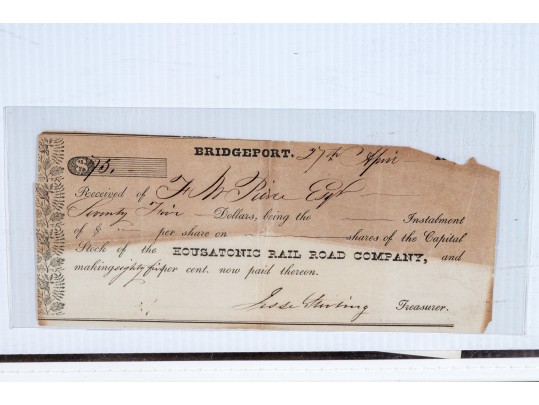 BRIDGEPORT. 27th April
$ 75.
Received of F W Pierce Esqr
Seventy Five Dollars, being the Instalment
of $ per share on shares of the Capital
Stock of the HOUSATONIC RAIL ROAD COMPANY, and
making eighty five per cent. now paid thereon.
Jesse Sterling Treasurer.